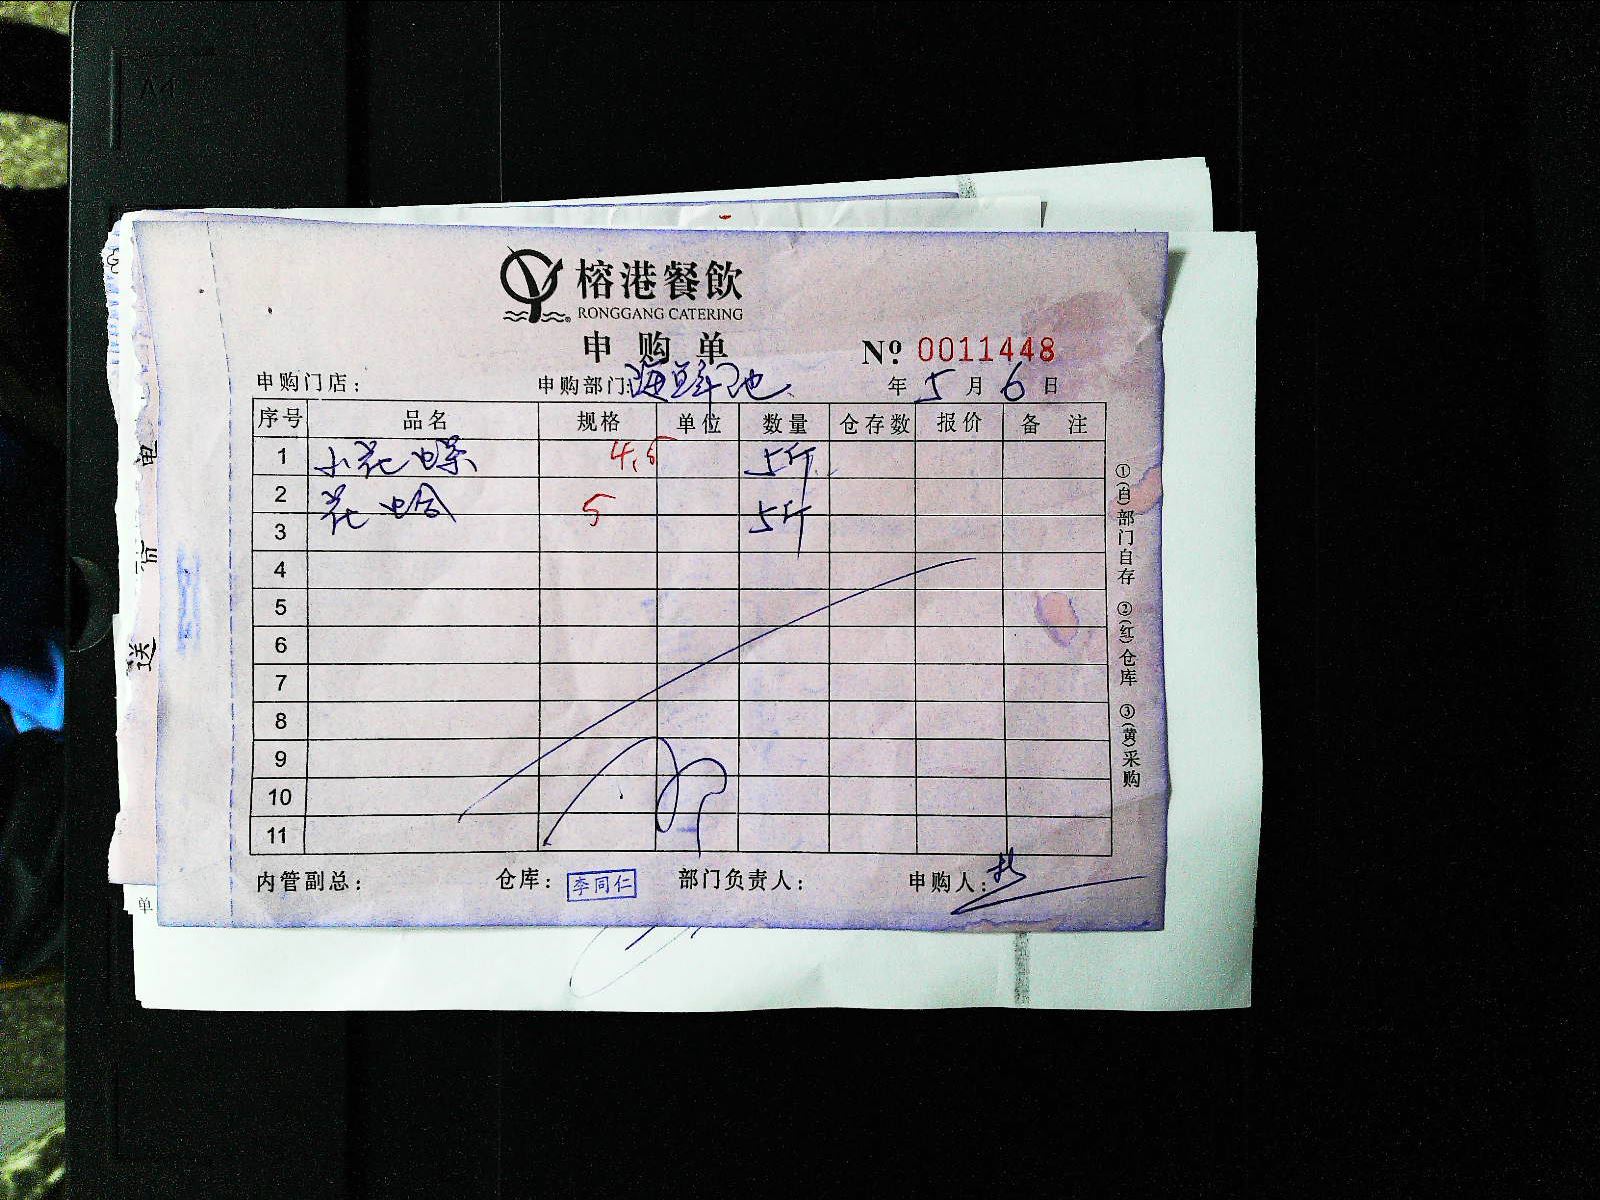 榕港餐飲
RONGGANG CATERING
申购单
Nº 0011448
申购门店： 申购部门：海鲜池 年 5 月 6 日
序号 品名 规格 单位 数量 仓存数 报价 备注
1 小花螺 4.5 5斤
2 花蛤 5 5斤
3
4
5
6
7
8
9
10
11
内管副总： 仓库：李同仁 部门负责人： 申购人：
①(白)部门自存 ②(红)仓库 ③(黄)采购
送
单